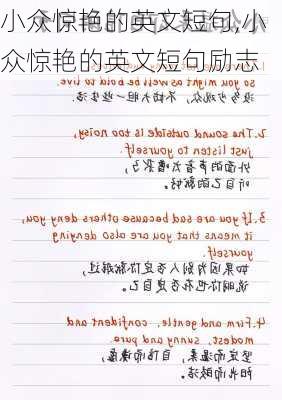 小众惊艳的英文短句,小
众惊艳的英文短句励志
so you might as well be bold to live.
没多少观众，不妨大胆一些生活
2.The sound outside is too noisy,
just to listen to yourself.
外面的声音太嘈杂了，
听自己的就好。
3.If you are sad because others deny you,
it means that you are also denying
yourself.
如果因为别人否定你就难过，
说明你也在否定自己。
4.Firm and gentle, confident and
modest, sunny and pure
坚定而温柔，自信而谦虚，
阳光而皎洁。